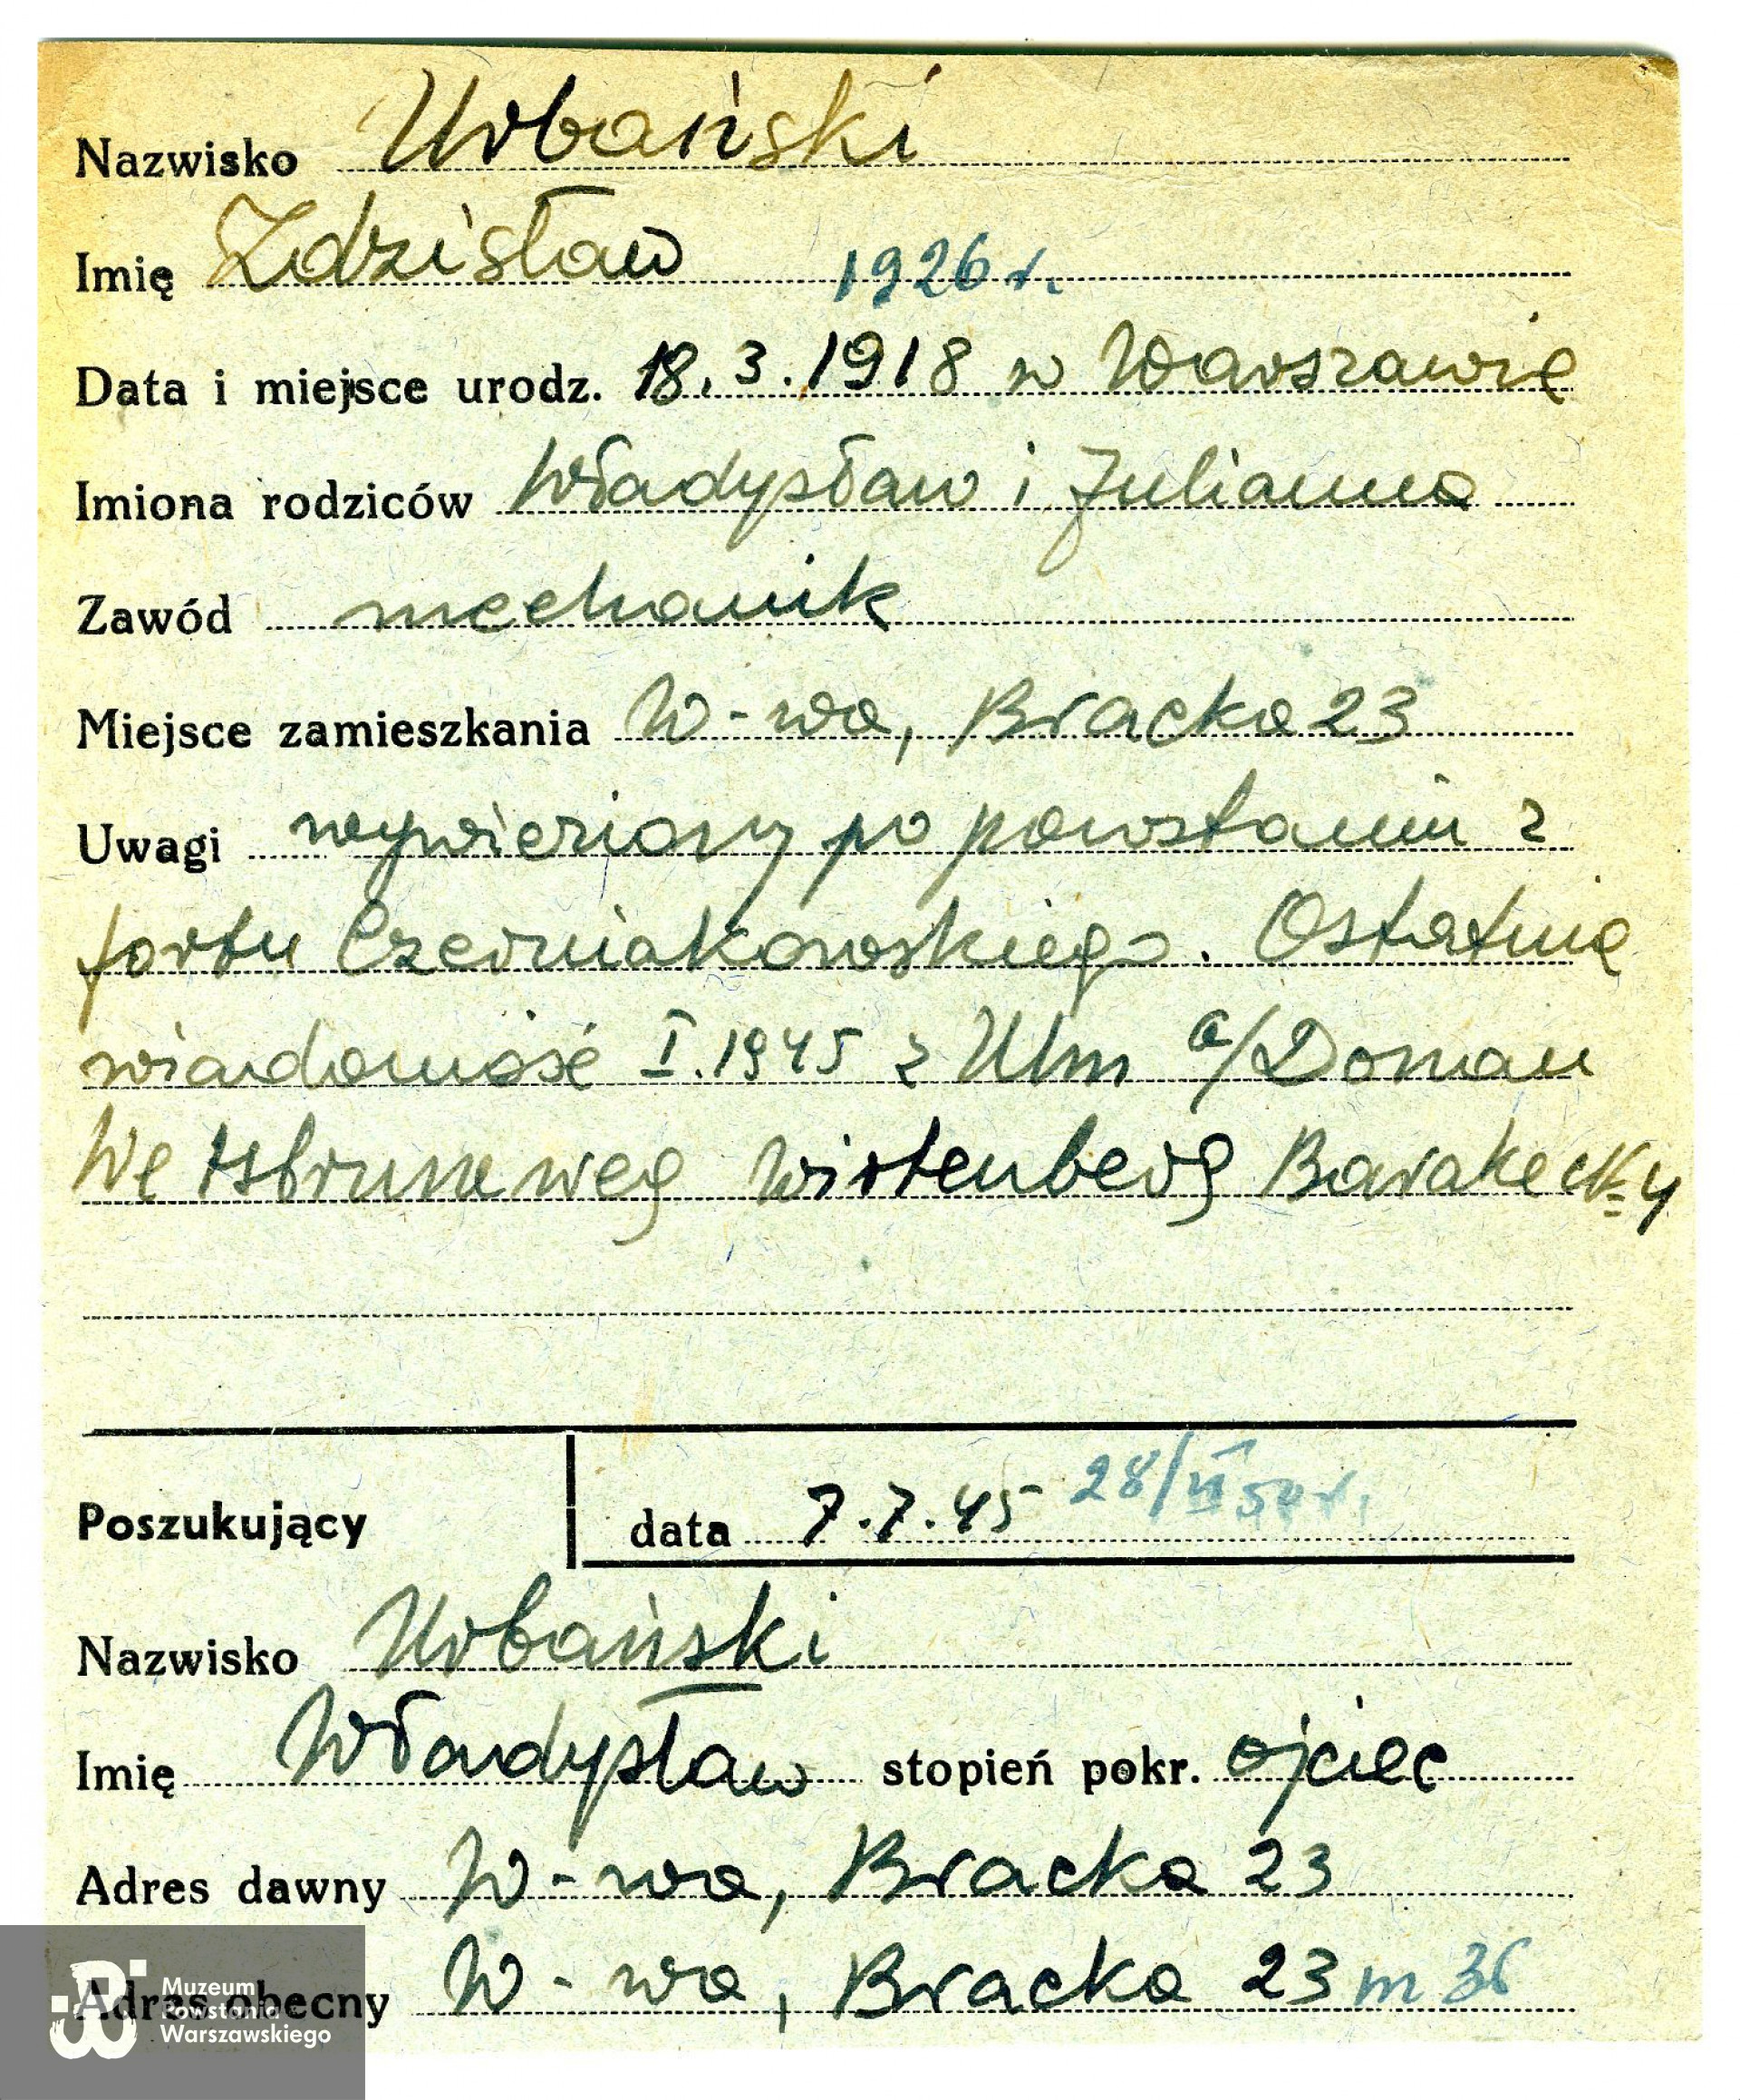 Nazwisko Urbański
Imię Zdzisław 1926 r.
Data i miejsce urodz. 18.3.1918 w Warszawie
Imiona rodziców Władysław i Julianna
Zawód mechanik
Miejsce zamieszkania W-wa, Bracka 23
Uwagi wywieziony po powstaniu z
fortu Czerniakowskiego. Ostatnia
wiadomość I.1945 z Ulm a/Donau
Wirtenberg Barake № 4
Poszukujący data 7.7.45 28/
Nazwisko Urbański
Imię Władysław stopień pokr. ojciec
Adres dawny W-wa, Bracka 23
Adres obecny W-wa, Bracka 23 m
Muzeum
Powstania
Warszawskiego